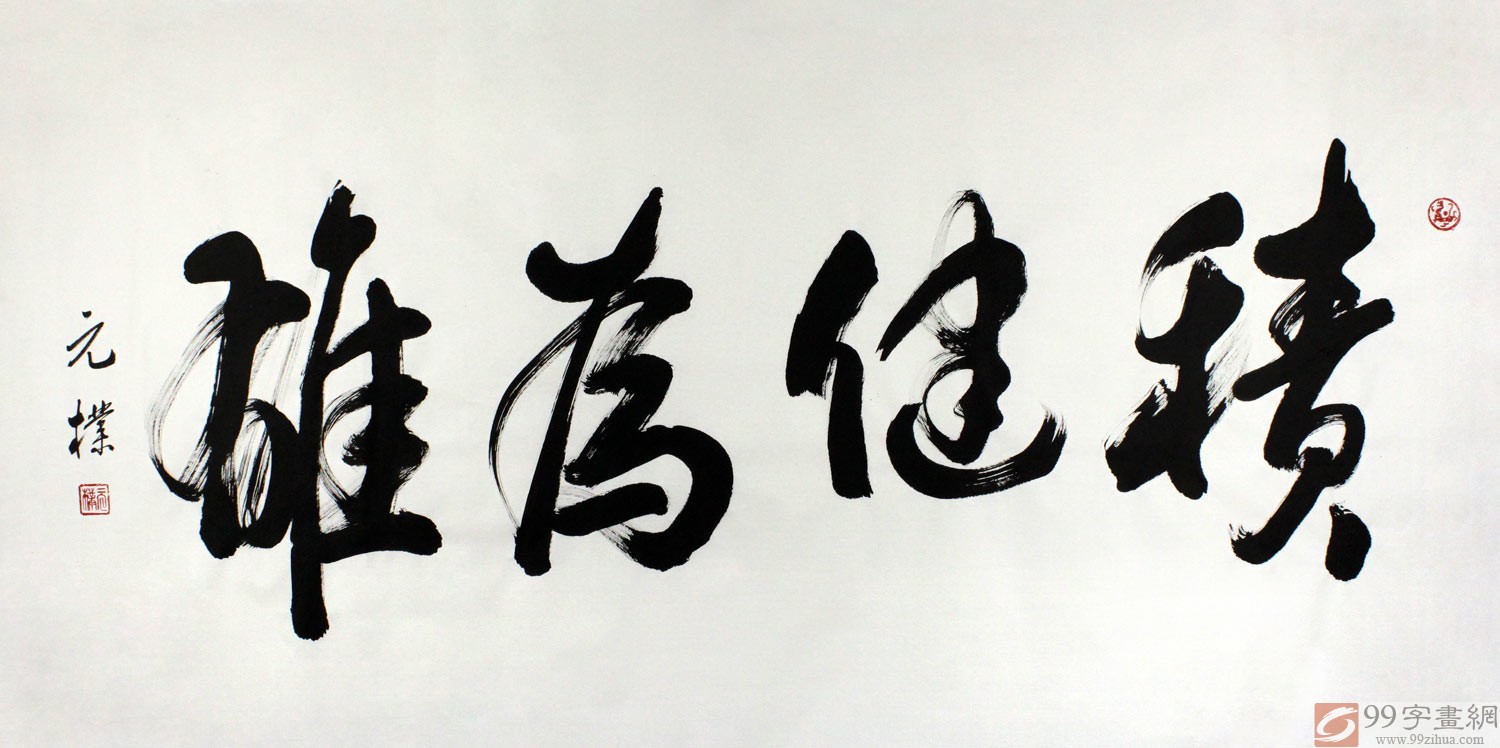 積健為雄
元樸
元樸
99字畫網
www.99zihua.com